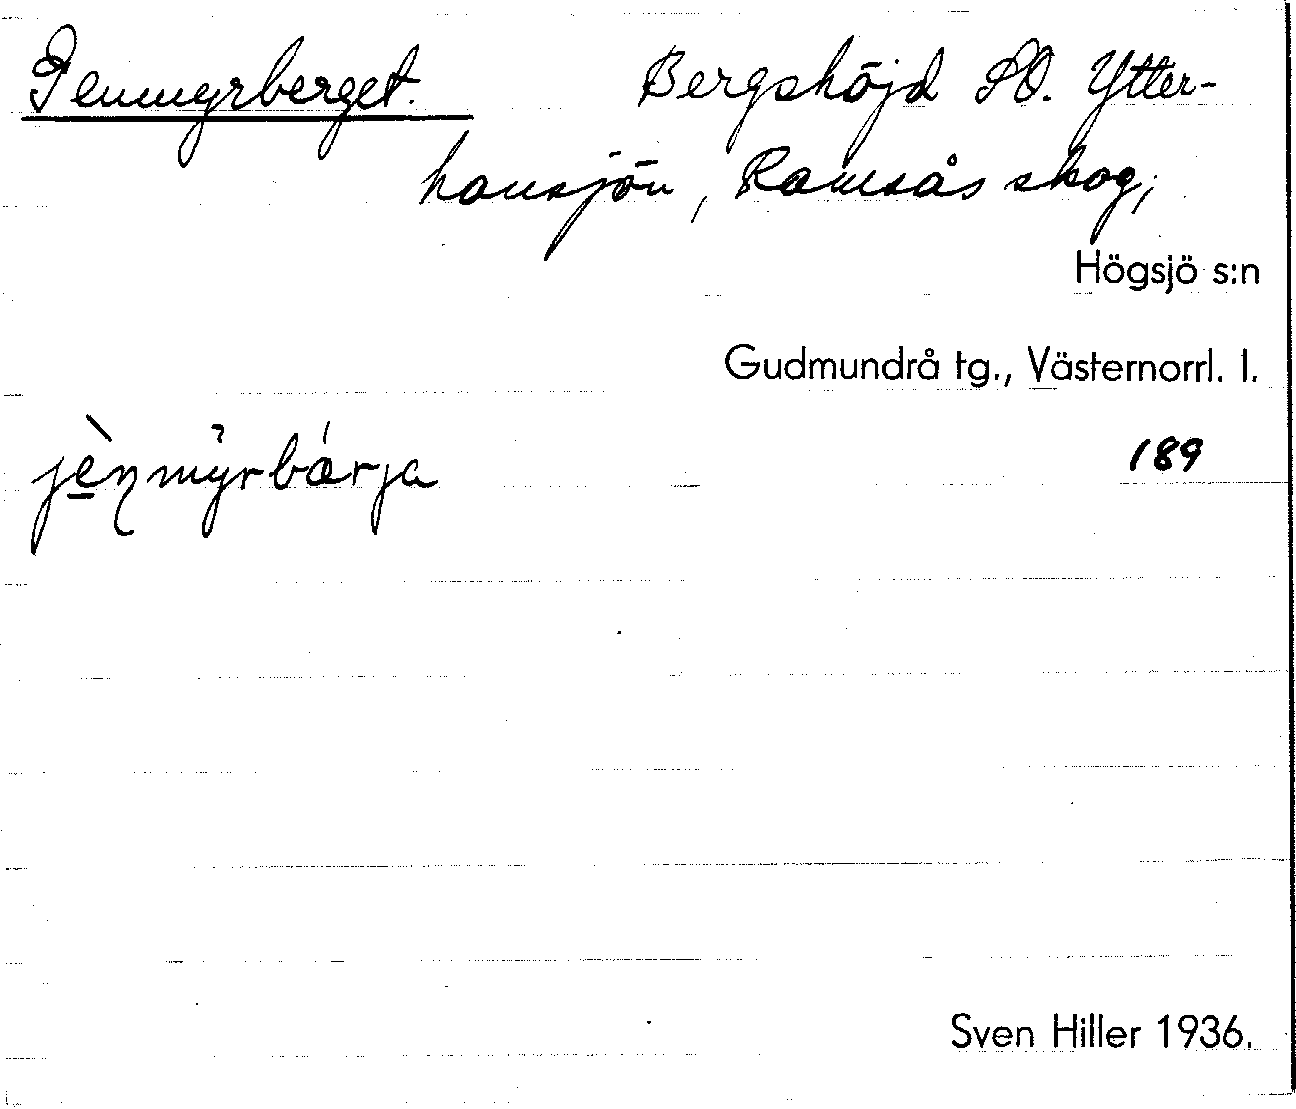 Genmyrberget. Bergshöjd SO. Ytter-
hansjön, Ramsås skog;
Högsjö s:n
Gudmundrå tg., Västernorrl. l.
189
Sven Hiller 1936.